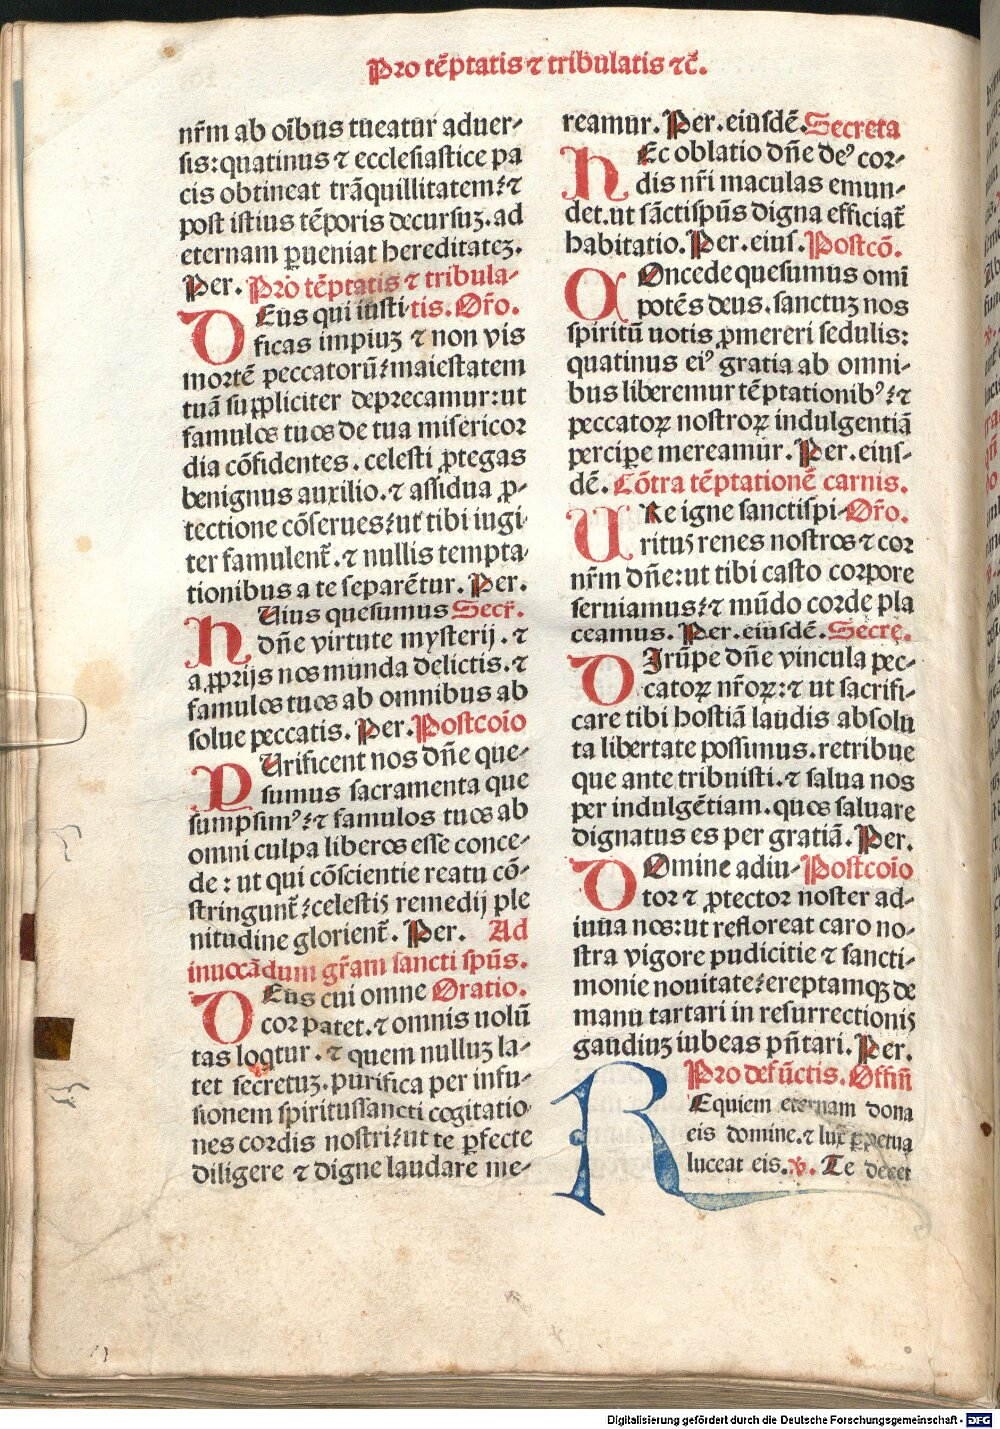 Pro tẽptatis ⁊ tribulatis ⁊c̃.
nr̃m ab oĩbus tueatur aduer-
sis: quatinus ⁊ ecclesiastice pa
cis obtineat trãquillitatem: ⁊
post istius tẽporis decursuꝫ. ad
eternam ꝑueniat hereditateꝫ.
Per. Pro tẽptatis ⁊ tribula-
DEus qui iusti-tis. Or̃o.
ficas impiuꝫ ⁊ non vis
mortẽ peccatorũ: maiestatem
tuã suppliciter deprecamur: ut
famulos tuos de tua misericor
dia cõfidentes. celesti ꝓtegas
benignus auxilio. ⁊ assidua ꝓ-
tectione cõserues: ut tibi iugi-
ter famulent̃. ⁊ nullis tempta-
tionibus a te separẽtur. Per.
HUius quesumus Secr̃.
dñe virtute mysterij. ⁊
a ꝓprijs nos munda delictis. ⁊
famulos tuos ab omnibus ab
solue peccatis. Per. Postcoĩo
PUrificent nos dñe que-
sumus sacramenta que
sumpsimꝰ: ⁊ famulos tuos ab
omni culpa liberos esse conce-
de: ut qui cõscientie reatu cõ-
stringunt̃: celestis remedij ple
nitudine glorient̃. Per. Ad
inuocãdum gr̃am sancti spũs.
DEus cui omne Oratio.
cor patet. ⁊ omnis uolũ
tas loqtur. ⁊ quem nulluꝫ la-
tet secretuꝫ. purifica per infu-
sionem spiritussancti cogitatio-
nes cordis nostri: ut te ꝑfecte
diligere ⁊ digne laudare me-
reamur. Per. eiusdẽ. Secreta
HEc oblatio dñe deꝰ cor-
dis nr̃i maculas emun-
det. ut sãctispũs digna efficiat̃
habitatio. Per. eius. Postcõ.
COncede quesumus omĩ
potẽs deus. sanctuꝫ nos
spiritũ uotis ꝓmereri sedulis:
quatinus eiꝰ gratia ab omni-
bus liberemur tẽptationibꝰ: ⁊
peccatoꝝ nostroꝝ indulgentiã
percipe mereamur. Per. eius-
dẽ. Cõtra tẽptationẽ carnis.
URe igne sanctispi-Or̃o.
ritus renes nostros ⁊ cor
nr̃m dñe: ut tibi casto corpore
seruiamus: ⁊ mũdo corde pla
ceamus. Per. eiusdẽ. Secre.
DIrũpe dñe vincula pec-
catoꝝ nr̃oꝝ: ⁊ ut sacrifi-
care tibi hostiã laudis absolu
ta libertate possimus. retribue
que ante tribuisti. ⁊ salua nos
per indulgẽtiam. quos saluare
dignatus es per gratiã. Per.
DOmine adiu-Postcoĩo
tor ⁊ ꝓtector noster ad-
iuua nos: ut refloreat caro no-
stra vigore pudicitie ⁊ sancti-
monie nouitate: ereptamqꝫ de
manu tartari in resurrectionis
gaudiuꝫ iubeas pñtari. Per.
Pro defũctis. Offiñ
REquiem eternam dona
eis domine. ⁊ lux ꝑpetua
luceat eis. v. Te decet
Digitalisierung gefördert durch die Deutsche Forschungsgemeinschaft - DFG